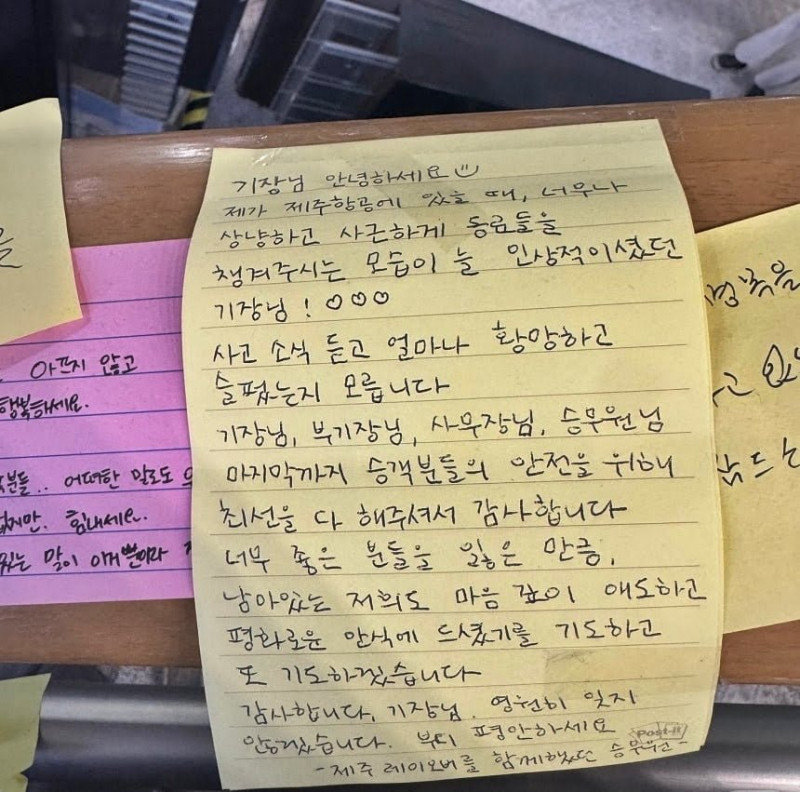 기장님 안녕하세요
제가 제주항공에 있을 때, 너무나
상냥하고 사근하게 동료들을
챙겨주시는 모습이 늘 인상적이셨던
기장님! ♡♡♡
사고 소식 듣고 얼마나 황망하고
슬펐는지 모릅니다
기장님, 부기장님, 사무장님, 승무원님
마지막까지 승객분들의 안전을 위해
최선을 다 해주셔서 감사합니다
너무 좋은 분들을 잃은 만큼,
남아있는 저희도 마음 깊이 애도하고
평화로운 안식에 드셨기를 기도하고
또 기도하겠습니다
감사합니다, 기장님. 영원히 잊지
않겠습니다. 부디 평안하세요
Post-it
-제주 레이오버를 함께했던 승무원-
을
아프지 않고
행복하세요.
분들.. 어떠한 말로도
없지만. 힘내세요.
있는 말이 이거뿐이라
명복을
고